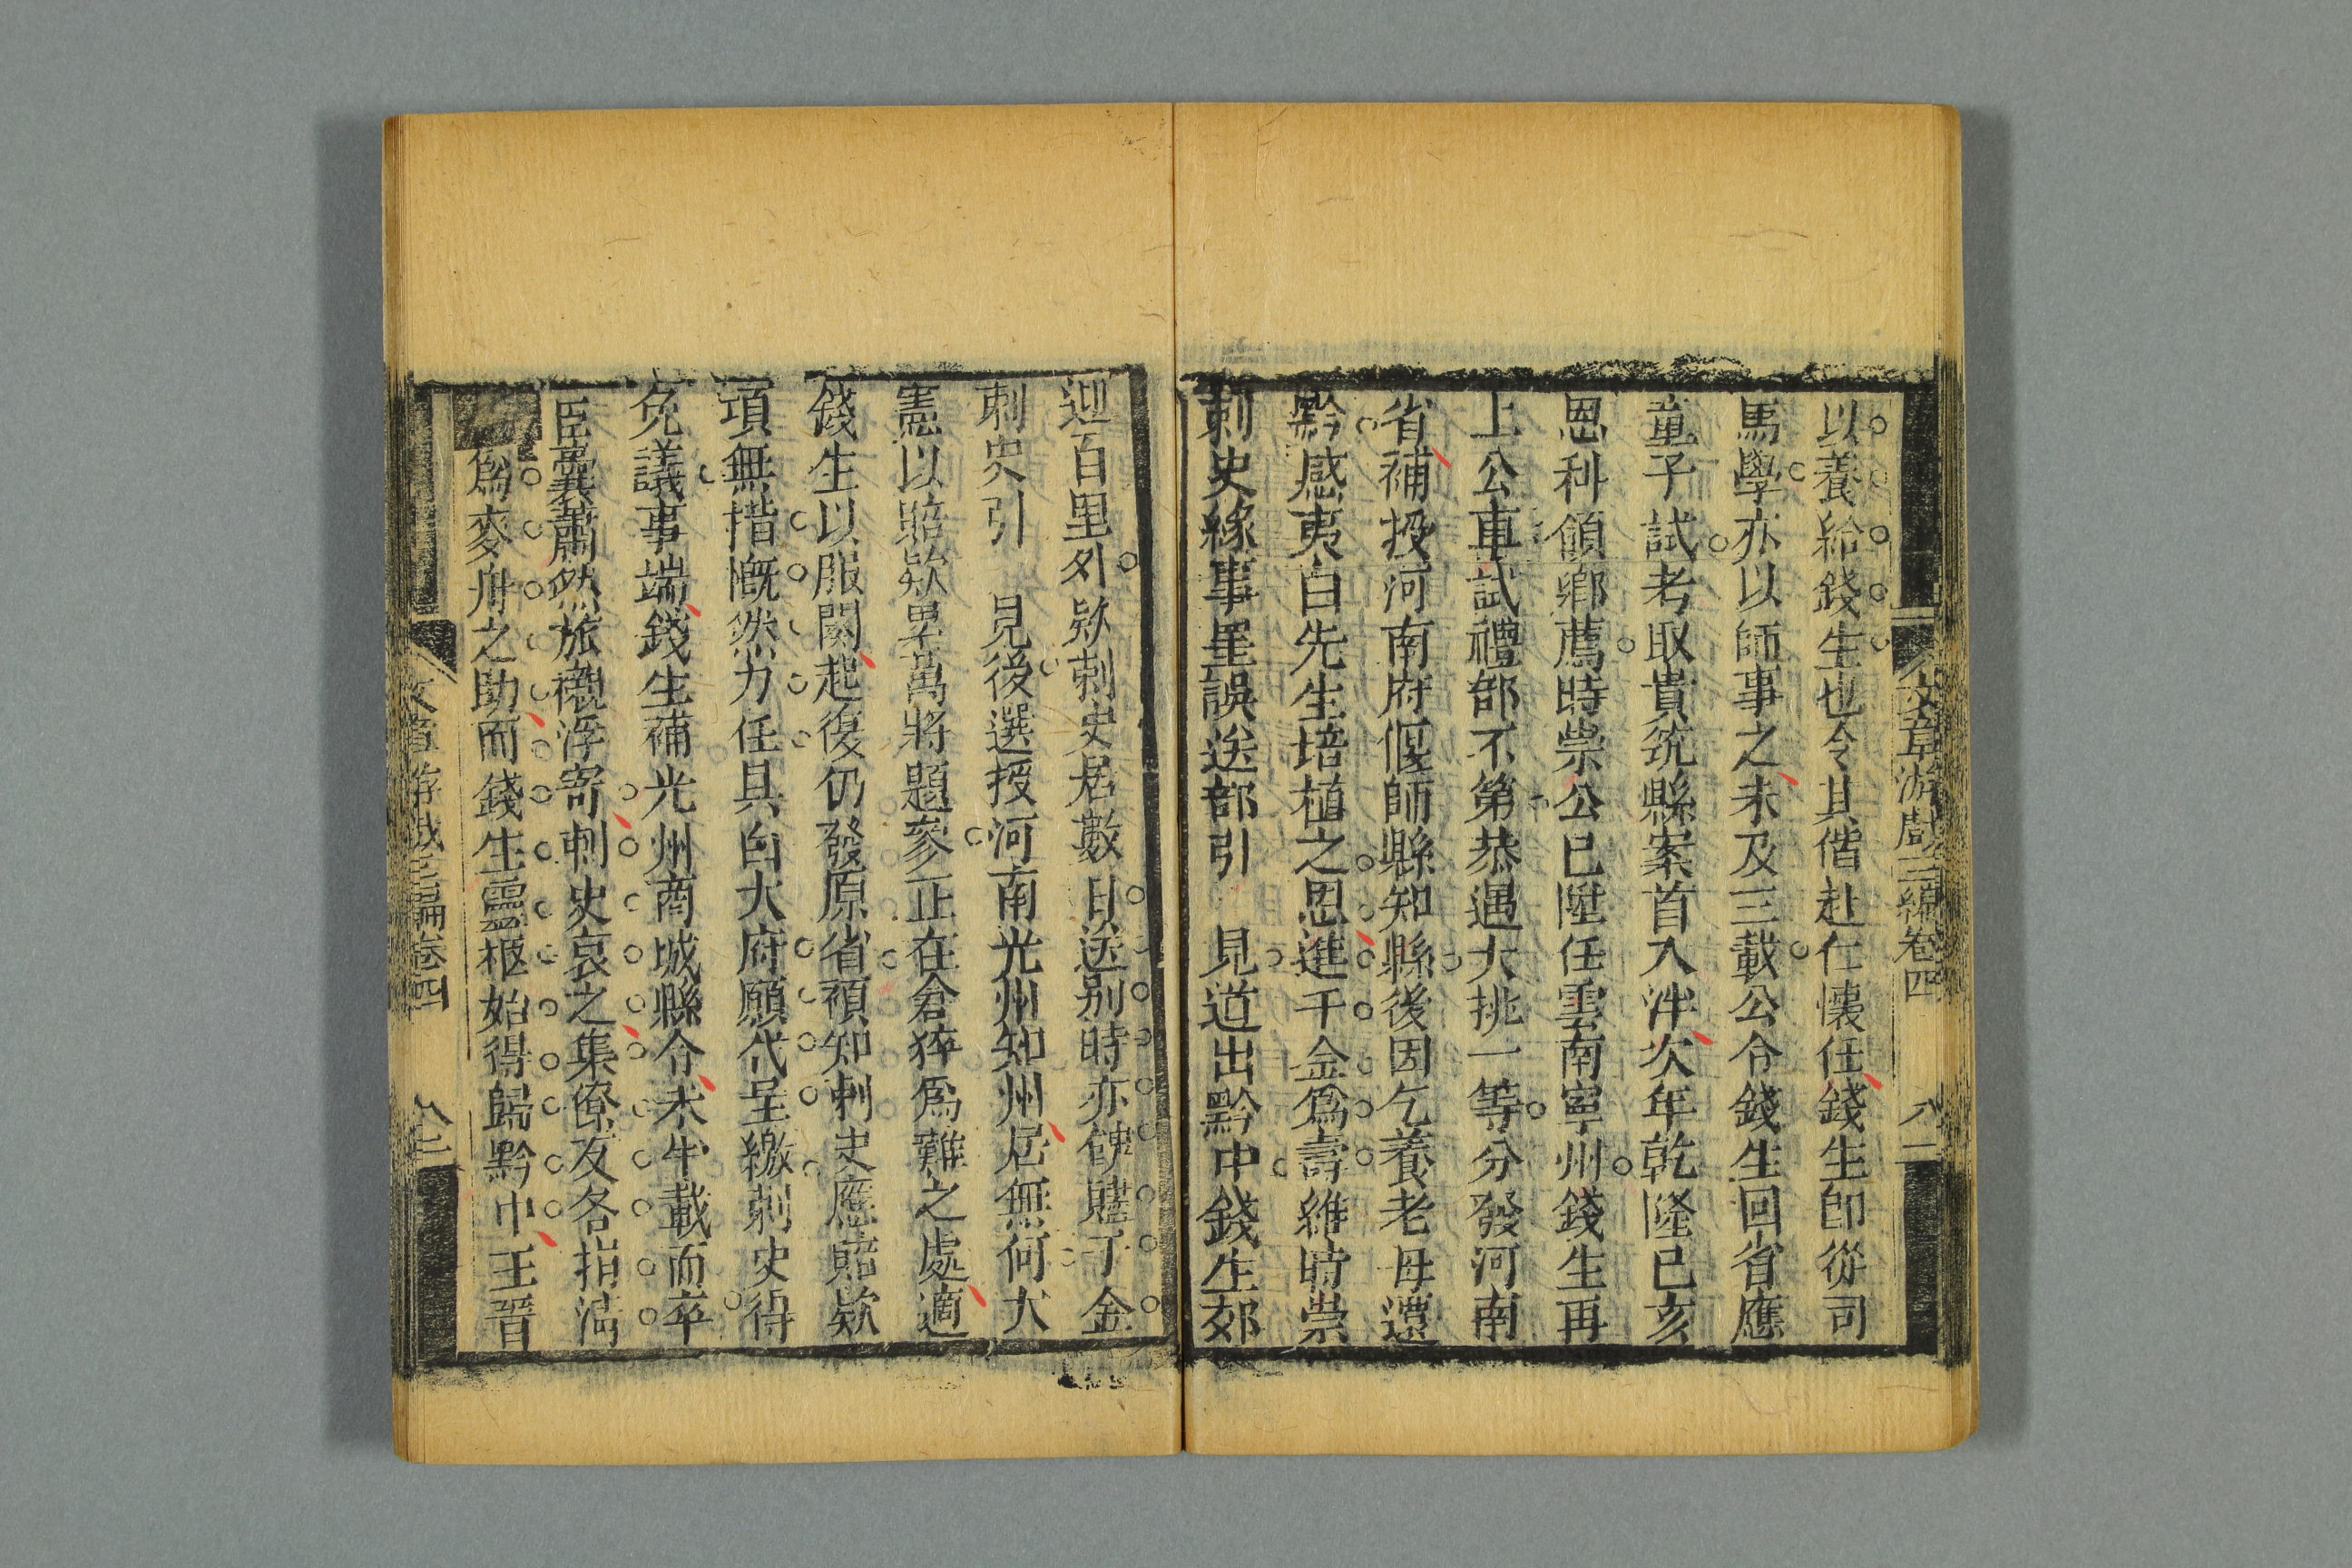 文章游戲三編卷四
八一
以養給錢生也令其偕赴仁懷任錢生卽從司
馬學亦以師事之未及三載公令錢生回省應
童子試考取貴筑縣案首入泮次年乾隆己亥
恩科領鄉薦時崇公已陞任雲南寧州錢生再
上公車試禮部不第恭遇大挑一等分發河南
省補授河南府偃師縣知縣後因乞養老母遷
黔感夷白先生培植之恩進千金爲壽維時崇
刺史緣事罣誤送部引 見道出黔中錢生郊
迎百里外欵刺史居數日送别時亦餽贐千金
刺史引 見後選授河南光州知州居無何大
憲以賠欵累萬將題參正在倉猝爲難之處適
錢生以服闋起復仍發原省預知刺史應賠欵
項無措慨然力任具白大府願代呈繳刺史得
免議事端錢生補光州商城縣令未半載而卒
臣囊蕭然旅櫬浮寄刺史哀之集僚友各捐淸
爲麥舟之助而錢生靈柩始得歸黔中王晋
文章游戲三編卷四
八二